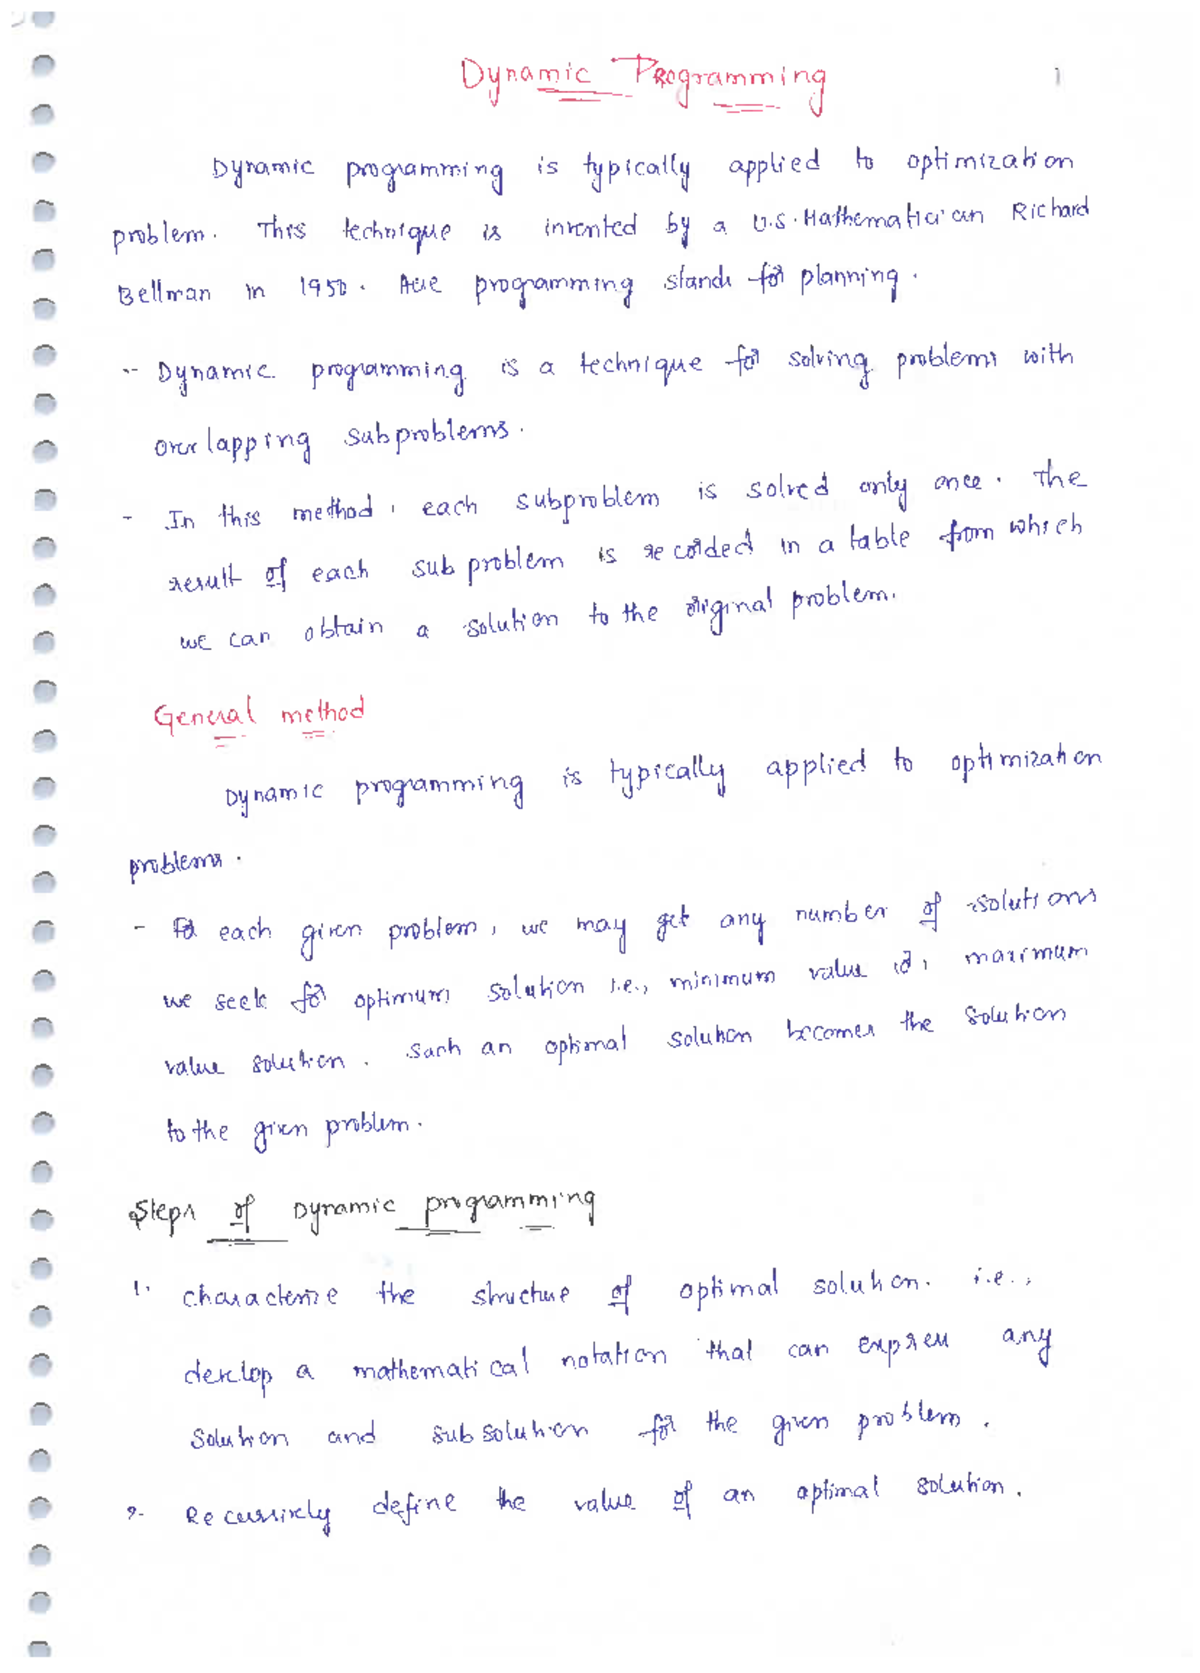 Dynamic Programming
1
Dynamic programming is typically applied to optimization
problem. This technique is invented by a U.S. Mathematician Richard
Bellman in 1950. programming stands for planning.
- Dynamic programming is a technique for solving problems with
overlapping subproblems.
- In this method, each subproblem is solved only once. The
result of each sub problem is recorded in a table from which
we can obtain a solution to the original problem.
General method
Dynamic programming is typically applied to optimization
problems.
- For each given problem, we may get any number of solutions
we seek for optimum solution i.e., minimum value or, maximum
value solution. Such an optimal solution becomes the solution
to the given problem.
Steps of Dynamic programming
1. characterize the structure of optimal solution. i.e.,
develop a mathematical notation that can express any
solution and subsolution for the given problem.
2. Recursively define the value of an optimal solution.